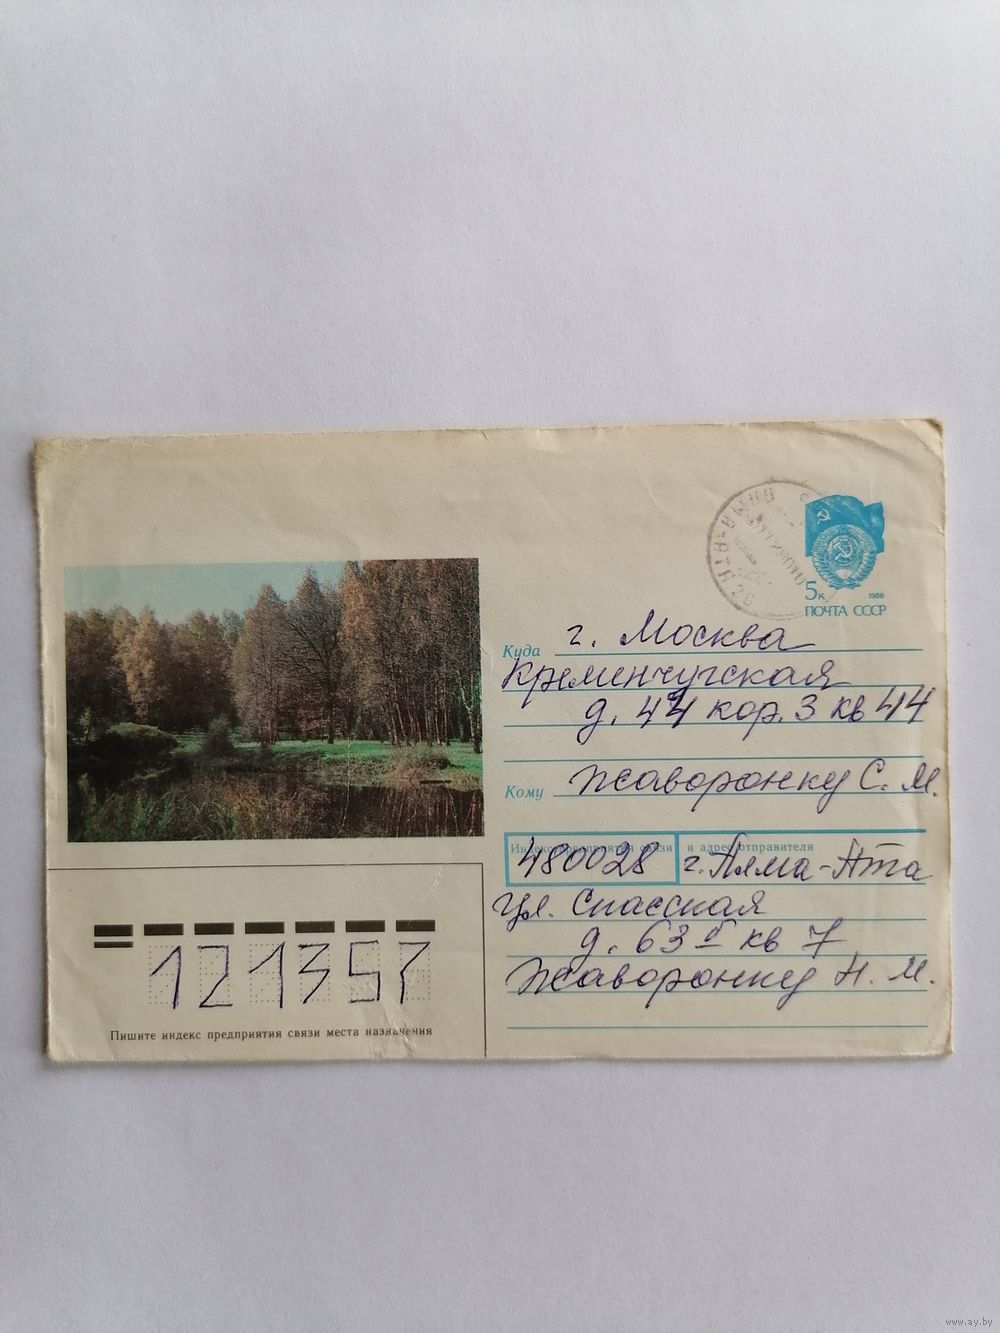 5к
1988
ПОЧТА СССР
Куда г. Москва
Кременчугская
д. 44 кор. 3 кв 44
Кому Жаворонку С. М.
Индекс предприятия связи и адрес отправителя
480028 г. Алма-Ата
ул. Спасская
д. 63 б кв 7
Жаворонку Н. М.
121357
Пишите индекс предприятия связи места назначения
www.ay.by